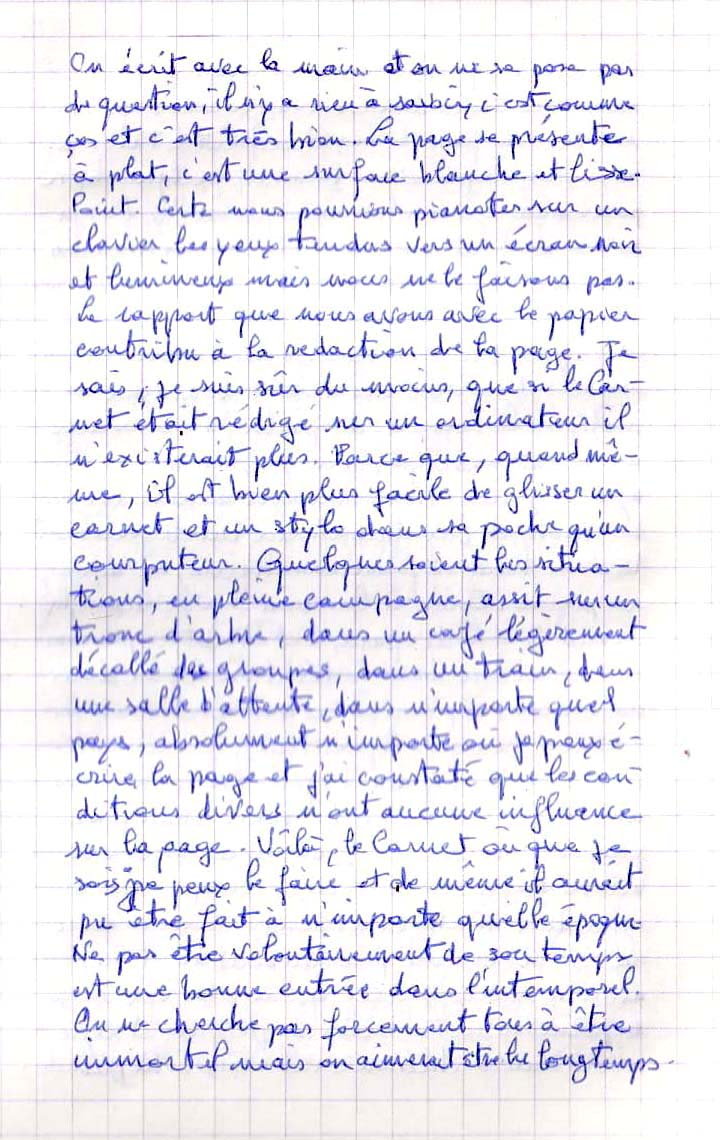 On écrit avec la main et on ne se pose pas
de question, il n'y a rien à saisir, c'est comme
ça et c'est très bien. La page se présente
à plat, c'est une surface blanche et lisse.
Point. Certe nous pourrions pianoter sur un
clavier les yeux tendus vers un écran noir
et lumineux mais nous ne le faisons pas.
Le rapport que nous avons avec le papier
contribu à la redaction de la page. Je
sais, je suis sûr du moins, que si le Car-
net était rédigé sur un ordinateur il
n'existerait plus. Parce que, quand mê-
me, il est bien plus facile de glisser un
carnet et un stylo dans sa poche qu'un
computeur. Quelques soient les situa-
tions, en pleine campagne, assit sur un
tronc d'arbre, dans un café légèrement
décallé des groupes, dans un train, dans
une salle d'attente, dans n'importe quel
pays, absolument n'importe où je peux é-
crire la page et j'ai constaté que les con
ditions divers n'ont aucune influence
sur la page. Voilà, le Carnet où que je
sois je peux le faire et de même il aurait
pu être fait à n'importe quelle époque
Ne pas être volontairement de son temps
est une bonne entrée dans l'intemporel.
On ne cherche pas forcement tous à être
immortel mais on aimerait être lu longtemps.